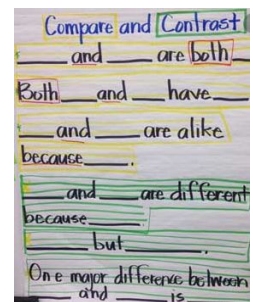 Compare and Contrast
___ and ___ are both ___
Both ___ and ___ have ___
___ and ___ are alike
because ___.
___ and ___ are different
because ___.
___ but ___.
One major difference between
___ and ___ is